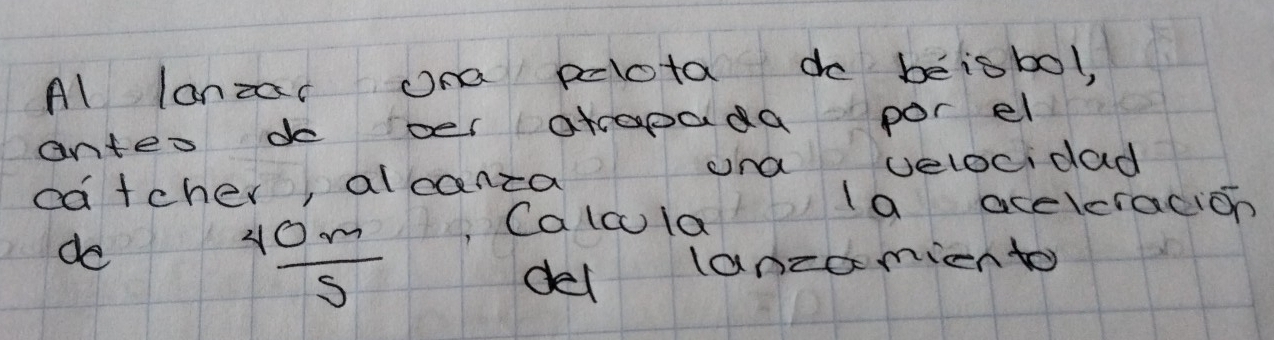 Al lanzar una pelota de béisbol,
antes de ser atrapada por el
cátcher, alcanza una velocidad
de 40m/s, Calcula la aceleración
del lanzamiento